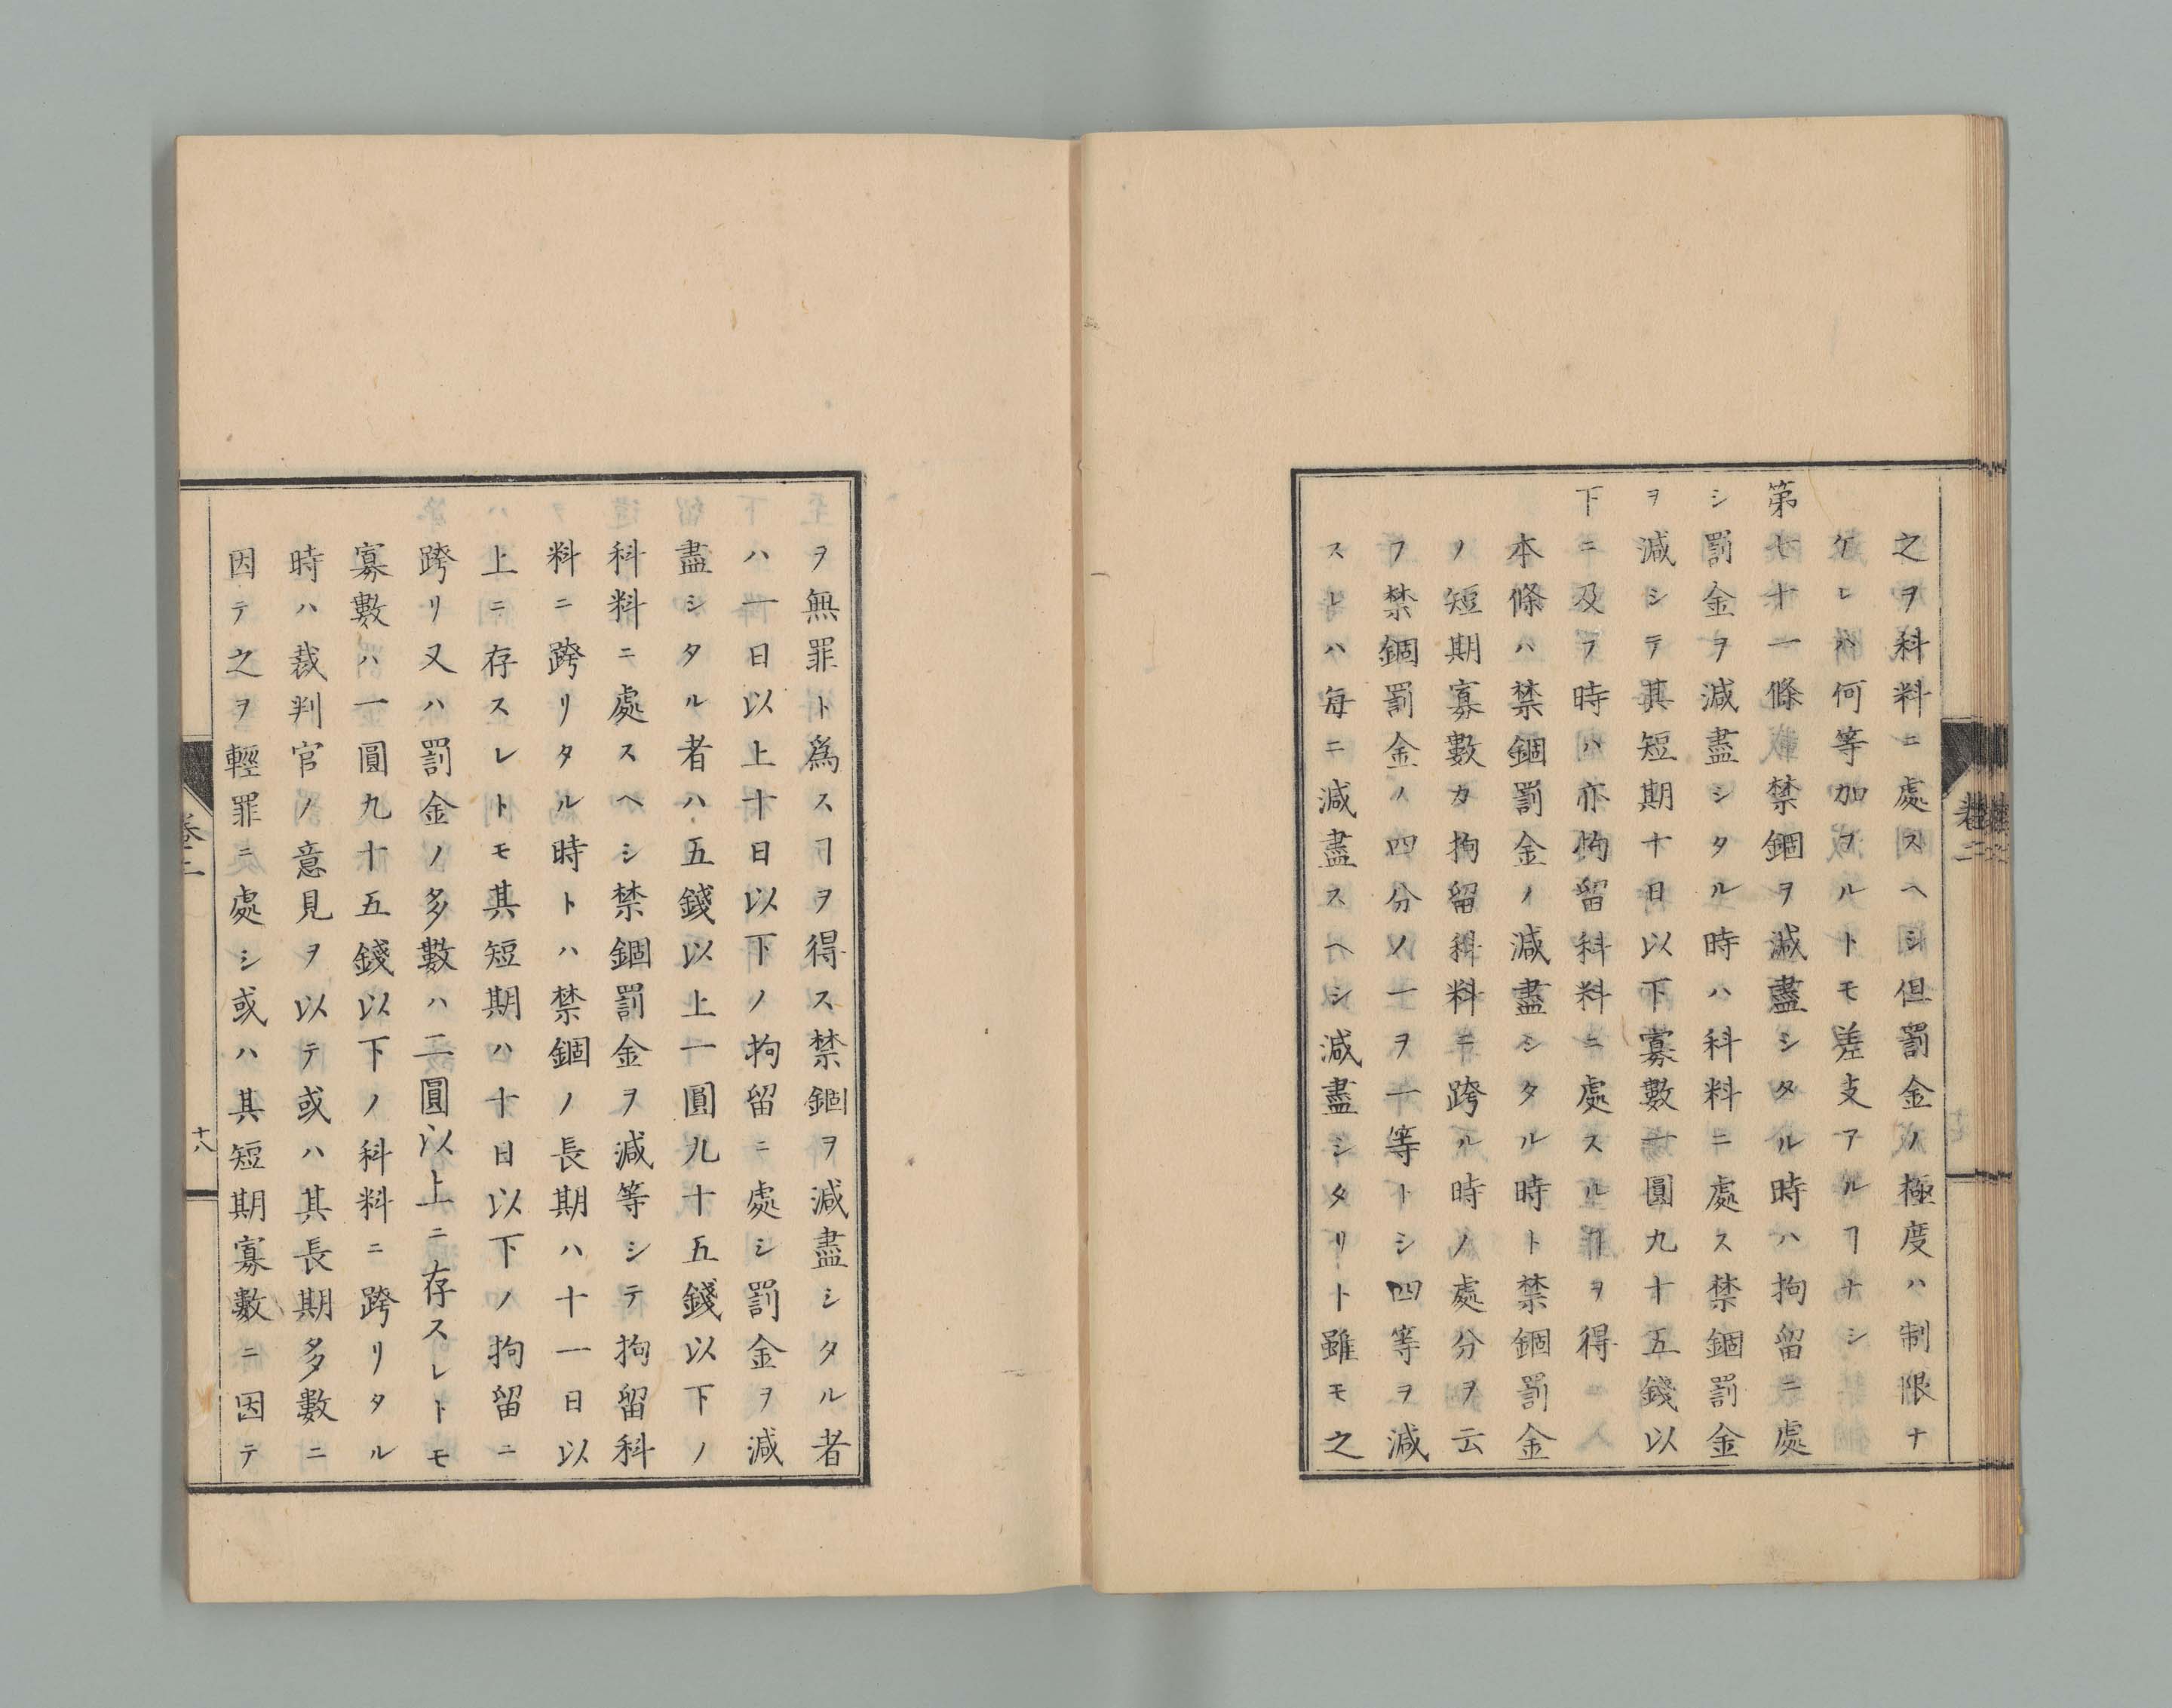 之ヲ科料ニ處スヘシ但罰金ノ極度ハ制限ナ
ケレハ何等加フルトモ差支アルヿナシ
第七十一條禁錮ヲ減盡シタル時ハ拘留ニ處
シ罰金ヲ減盡シタル時ハ科料ニ處ス禁錮罰金
ヲ減シテ其短期十日以下寡數一圓九十五錢以
下ニ及フ時ハ亦拘留科料ニ處スルヿヲ得
本條ハ禁錮罰金ノ減盡シタル時ト禁錮罰金
ノ短期寡數カ拘留科料ニ跨ル時ノ處分ヲ云
フ禁錮罰金ノ四分ノ一ヲ一等トシ四等ヲ減
スレハ毎ニ減盡スヘシ減盡シタリト雖モ之
卷二
ヲ無罪ト爲スヿヲ得ス禁錮ヲ減盡シタル者
ハ一日以上十日以下ノ拘留ニ處シ罰金ヲ減
盡シタル者ハ五錢以上一圓九十五錢以下ノ
科料ニ處スヘシ禁錮罰金ヲ減等シテ拘留科
料ニ跨リタル時トハ禁錮ノ長期ハ十一日以
上ニ存スレトモ其短期ハ十日以下ノ拘留ニ
跨リ又ハ罰金ノ多數ハ二圓以上ニ存スレトモ
寡數ハ一圓九十五錢以下ノ科料ニ跨リタル
時ハ裁判官ノ意見ヲ以テ或ハ其長期多數ニ
因テ之ヲ輕罪ニ處シ或ハ其短期寡數ニ因テ
卷二
十八